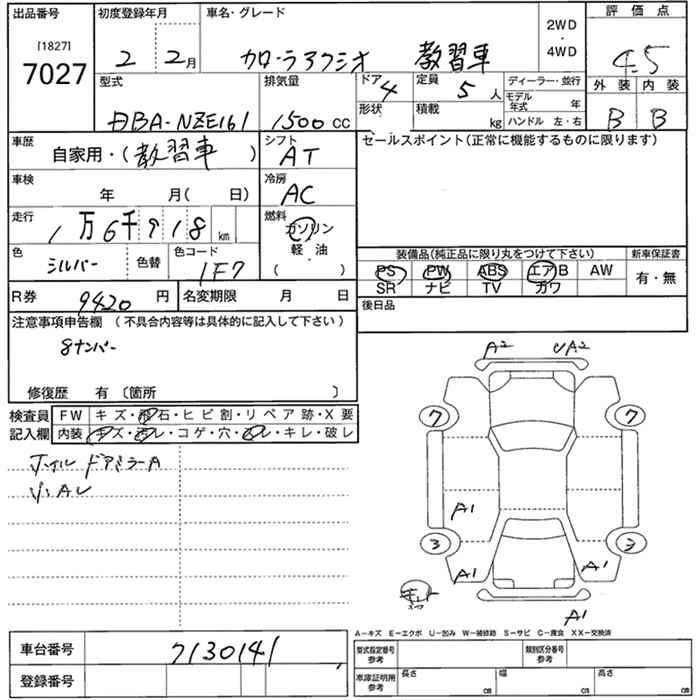 出品番号 初度登録年月 車名・グレード 2WD・4WD 評価点
[1827]
7027 2 2月 カローラアクシオ 教習車 4.5
型式 排気量 ドア 4 定員 5 人 ディーラー・並行 外装 内装
DBA-NZE161 1500 cc 形状 積載 kg モデル年式 年 B B
ハンドル 左・右
車歴 自家用・(教習車) シフト AT セールスポイント(正常に機能するものに限ります)
車検 年 月( 日) 冷房 AC
走行 1万6千918km 燃料 ガソリン
軽・油
( )
色 シルバー 色替 色コード 1F7 装備品(純正品に限り丸をつけて下さい) 新車保証書
PS PW ABS エアB AW 有・無
SR ナビ TV カワ
R券 9420円 名変期限 月 日 後日品
注意事項申告欄(不具合内容等は具体的に記入して下さい)
8ナンバー
修復歴 有〔箇所 〕
検査員 FW キズ・飛石・ヒビ割・リペア跡・X要
記入欄 内装 キズ・汚レ・コゲ・穴・スレ・キレ・破レ
ホイル ドアミラーA
A2 A2
7 7
A1
3 3
A1 A1
A1
A-キズ E-エクボ U-凹み W-補修跡 S-サビ C-腐食 XX-交換済
車台番号 7130141 型式指定番号 参考 類別区分番号 参考
登録番号 車庫証明用 参考 長さ cm 幅 cm 高さ cm